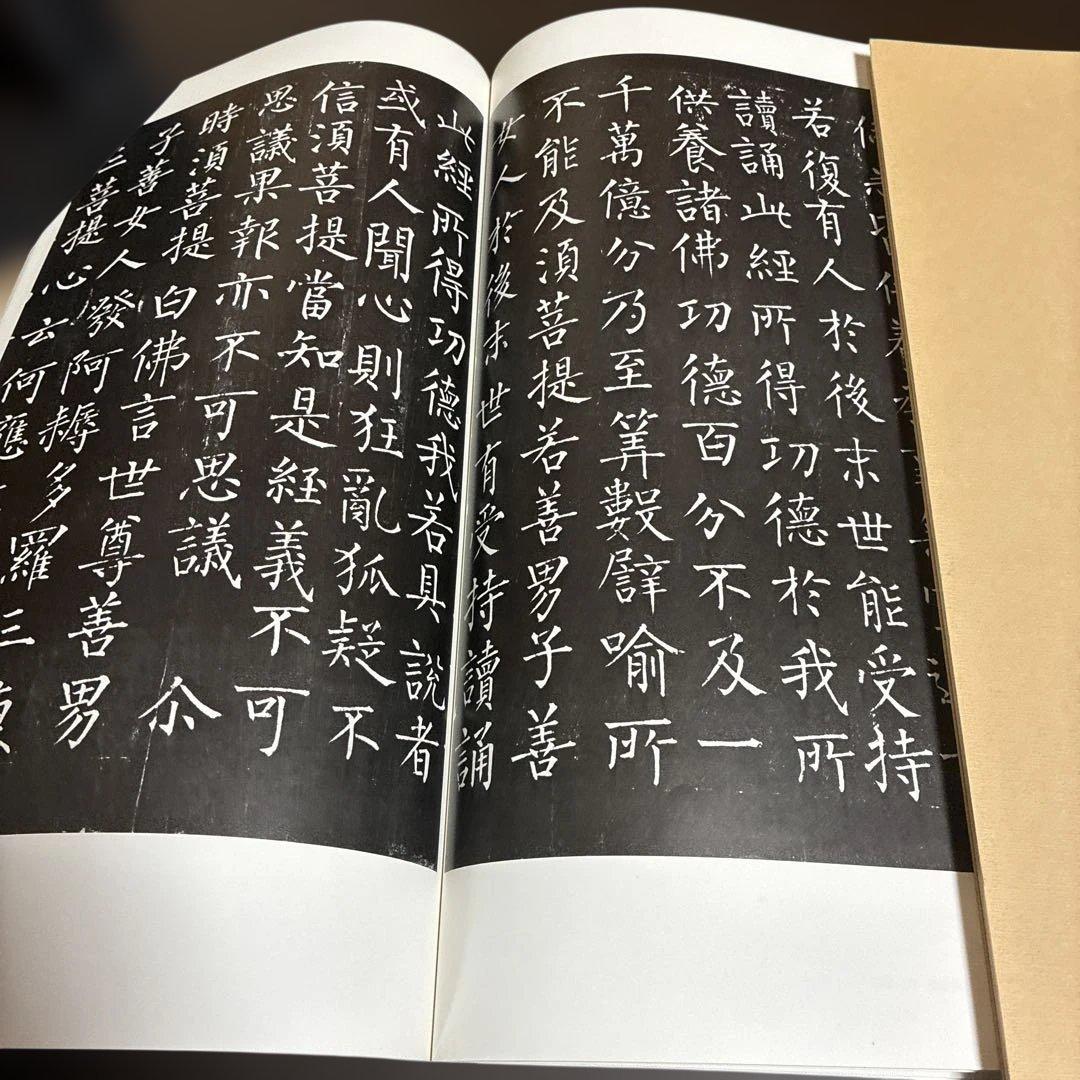 若復有人於後末世能受持
讀誦此經所得功德於我所
供養諸佛功德百分不及一
千萬億分乃至筭數譬喻所
不能及須菩提若善男子善
女人於後末世有受持讀誦
此經所得功德我若具說者
或有人聞心則狂亂狐疑不
信須菩提當知是經義不可
思議果報亦不可思議尒
時須菩提白佛言世尊善男
子善女人發阿耨多羅三
三菩提心云何應